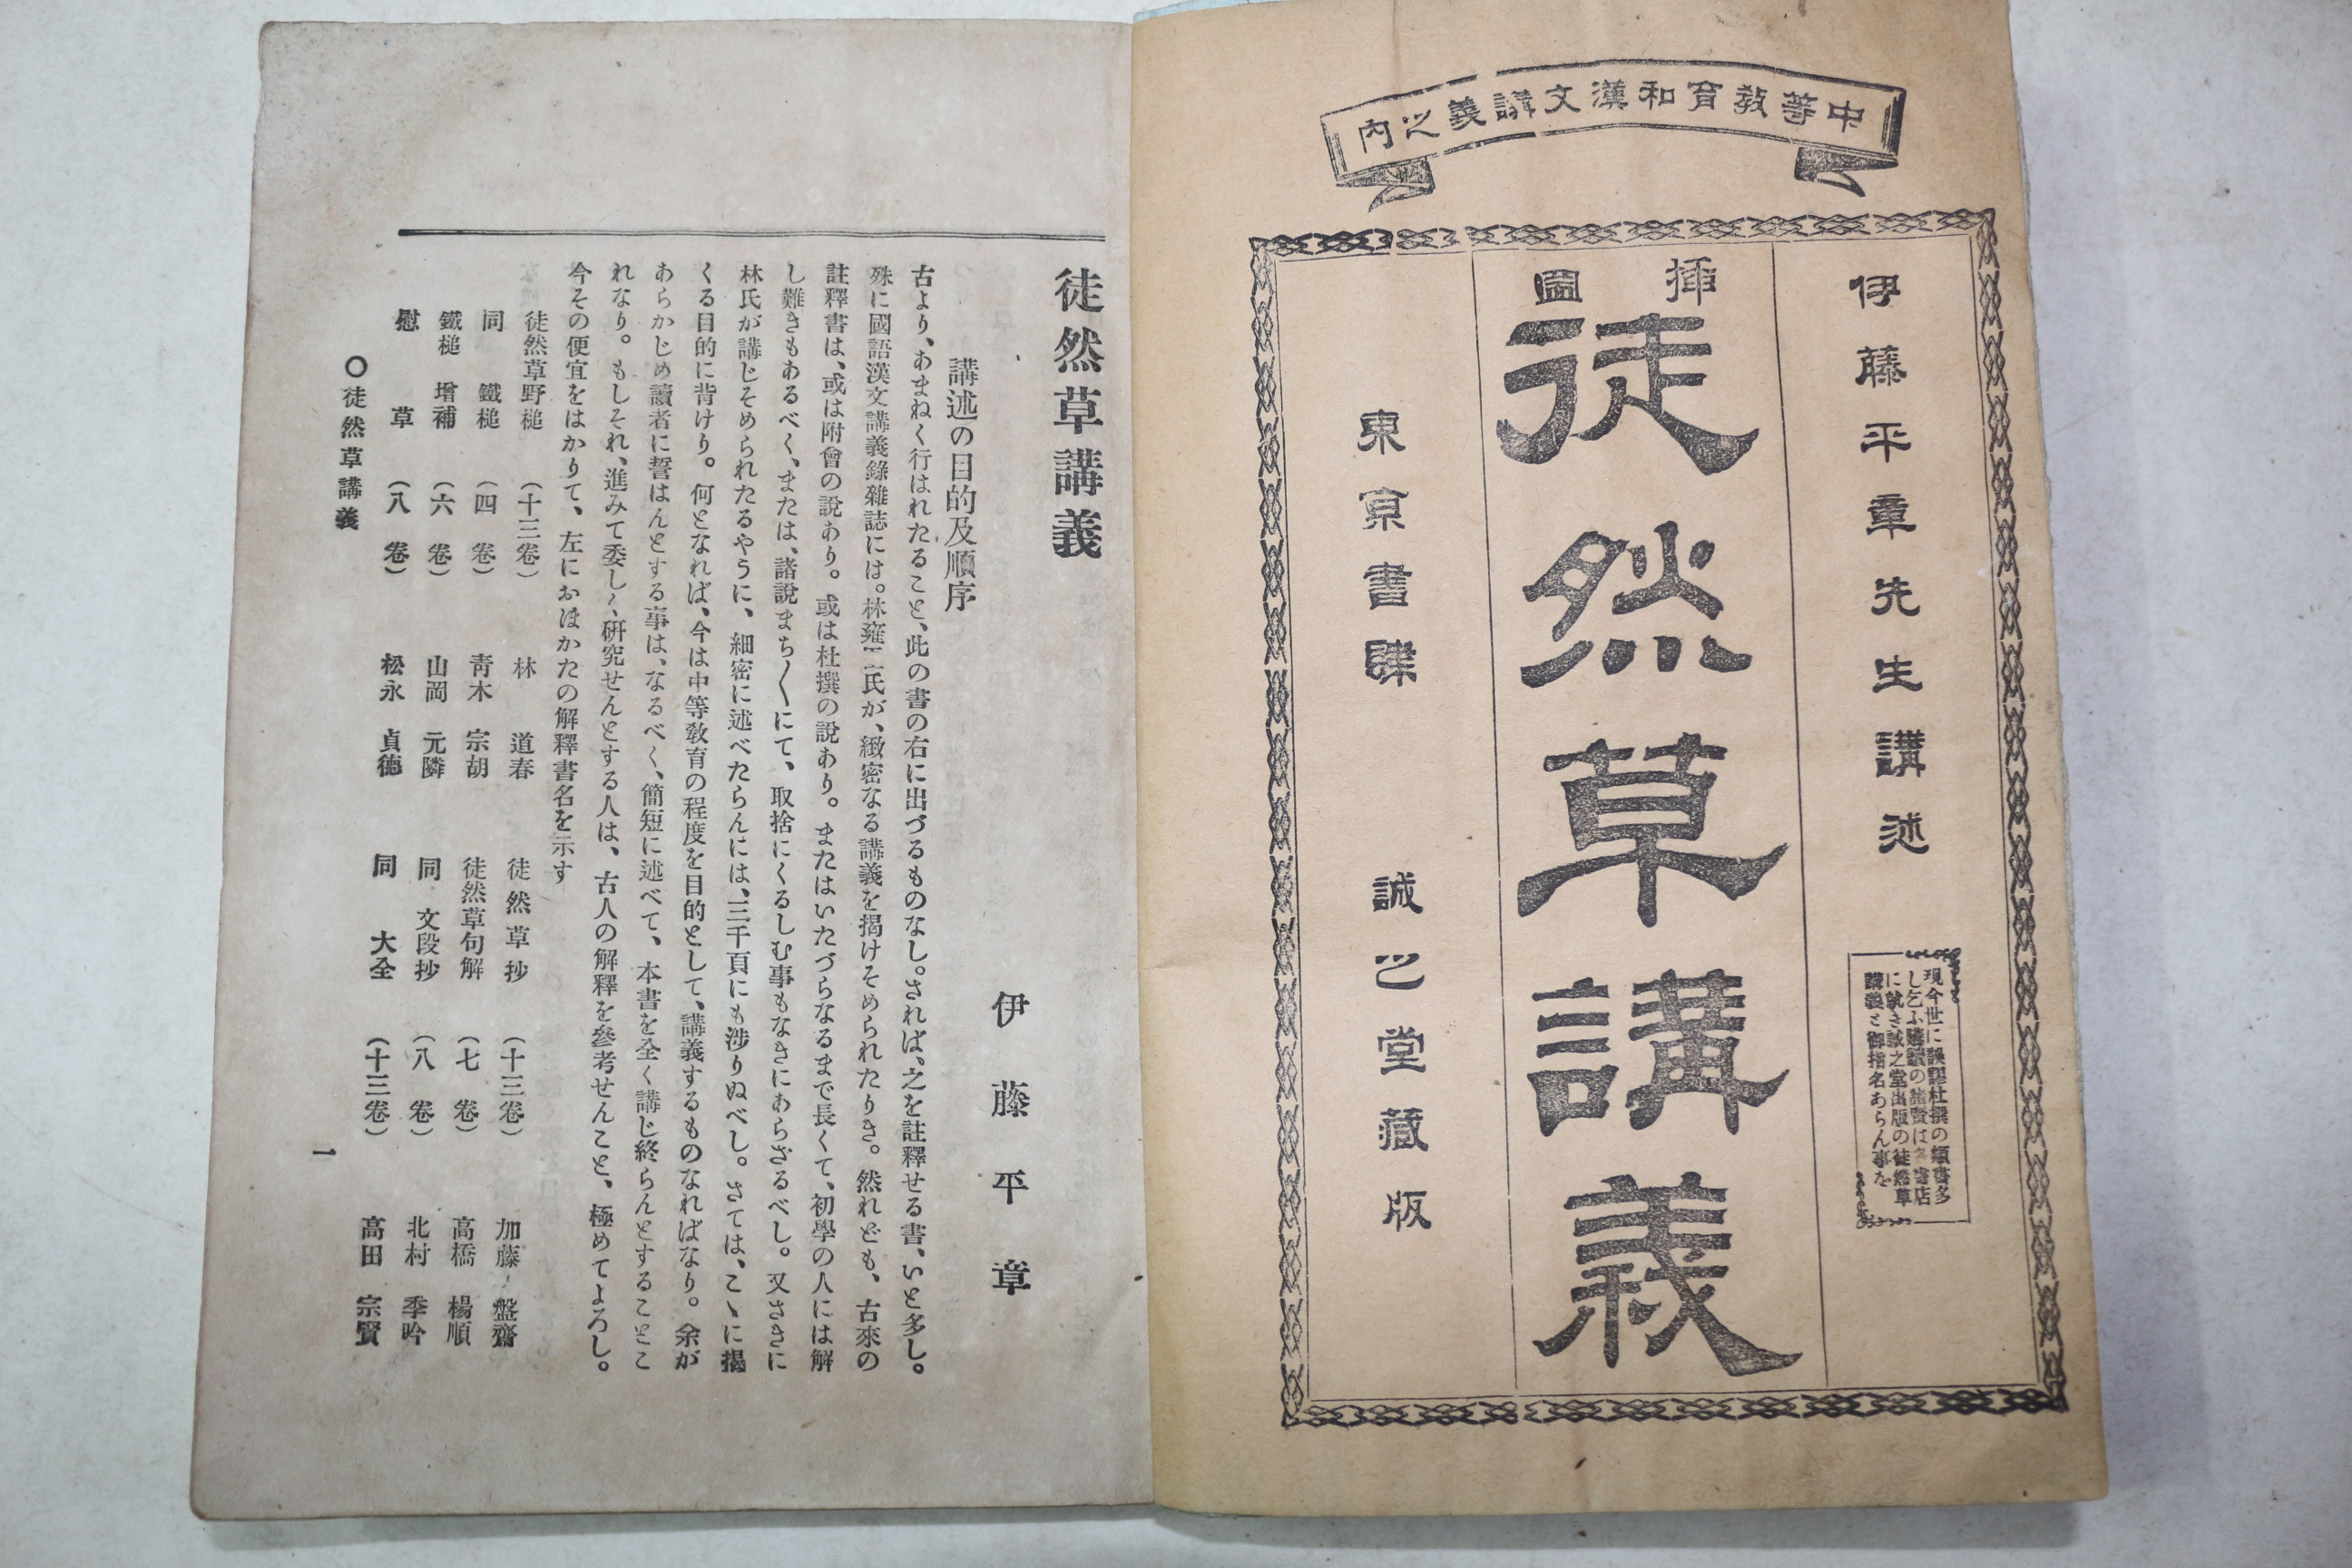 中等教育和漢文講義之内
伊藤平章先生講述
現今世に誤謬杜撰の類書多
し乞ふ購讀の諸賢は各書店
に就き誠之堂出版の徒然草
講義と御指名あらん事を
挿圖
徒然草講義
東京書肆 誠之堂藏版
徒然草講義
伊藤平章
講述の目的及順序
古より、あまねく行はれたること、此の書の右に出づるものなし。されば、之を註釋せる書、いと多し。
殊に國語漢文講義錄雜誌には。林甕臣氏が、緻密なる講義を揭けそめられたりき。然れども、古來の
註釋書は、或は附會の說あり。或は杜撰の說あり。またはいたづらなるまで長くて、初學の人には解
し難きもあるべく、または、諸說まち〱にて、取捨にくるしむ事もなきにあらざるべし。又さきに
林氏が講じそめられたるやうに、細密に述べたらんには、三千頁にも涉りぬべし。さては、こゝに揭
くる目的に背けり。何となれば、今は中等敎育の程度を目的として、講義するものなればなり。余が
あらかじめ讀者に誓はんとする事は、なるべく、簡短に述べて、本書を全く講じ終らんとすることこ
れなり。もしそれ、進みて委しく、硏究せんとする人は、古人の解釋を參考せんこと、極めてよろし。
今その便宜をはかりて、左におほかたの解釋書名を示す
徒然草野槌 (十三卷) 林 道春 徒然草抄 (十三卷) 加藤 盤齋
同 鐵槌 (四卷) 靑木 宗胡 徒然草句解 (七卷) 高橋 楊順
鐵槌 增補 (六卷) 山岡 元隣 同 文段抄 (八卷) 北村 季吟
慰草 (八卷) 松永 貞德 同 大全 (十三卷) 高田 宗賢
〇徒然草講義 一